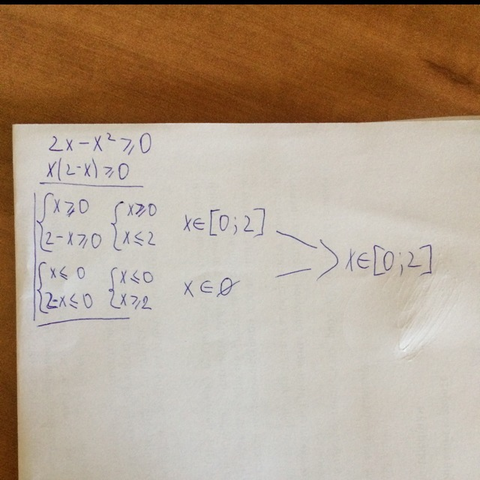 2x-x²⩾0
x(2-x)⩾0
{x⩾0 {x⩾0
2-x⩾0 x⩽2 x∈[0;2]
x∈[0;2]
{x⩽0 {x⩽0
2-x⩽0 x⩾2 x∈∅